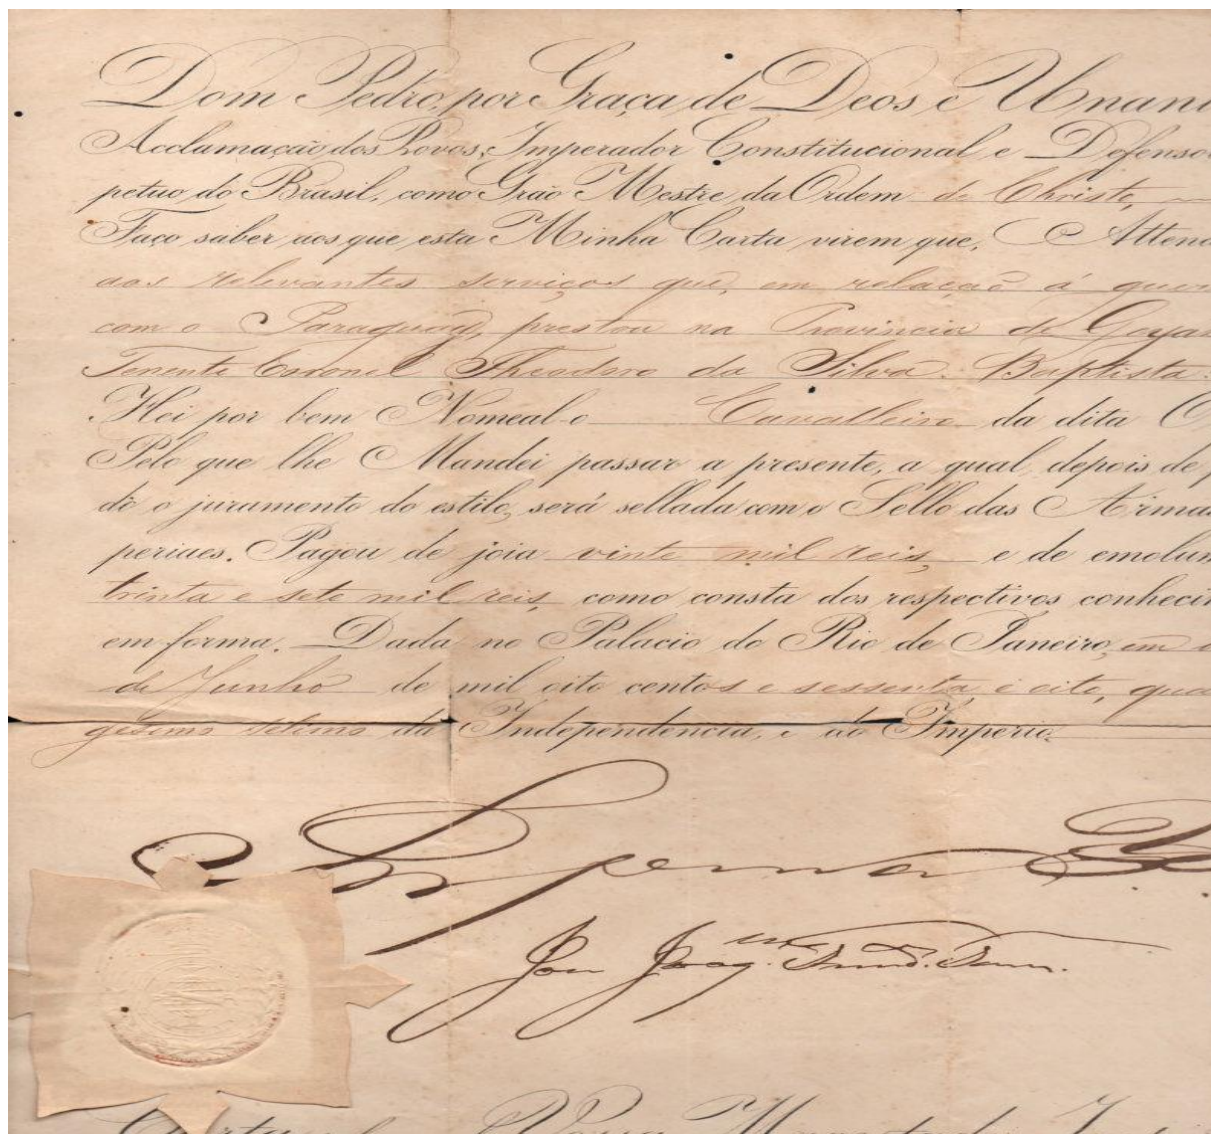 Dom Pedro, por Graça de Deos e Unani
Acclamação dos Povos, Imperador Constitucional e Defenso
petuo do Brasil, como Grão Mestre da Ordem de Christo,
Faço saber aos que esta Minha Carta virem que, Atten
aos relevantes serviços que, em relação á guer
com o Paraguay, prestou na Provincia de Goyas
Tenente Coronel Theodoro da Silva Baptista
Hei por bem Nomeal-o Cavalleiro da dita O
Pelo que lhe Mandei passar a presente, a qual, depois de p
do o juramento do estilo, será sellada com o Sello das Armas
periaes. Pagou de joia vinte mil reis, e de emolum
trinta e sete mil reis, como consta dos respectivos conheci
em forma. Dada no Palacio do Rio de Janeiro, em
de Junho de mil oito centos e sessenta e oito, qua
gesimo setimo da Independencia, e do Imperio.